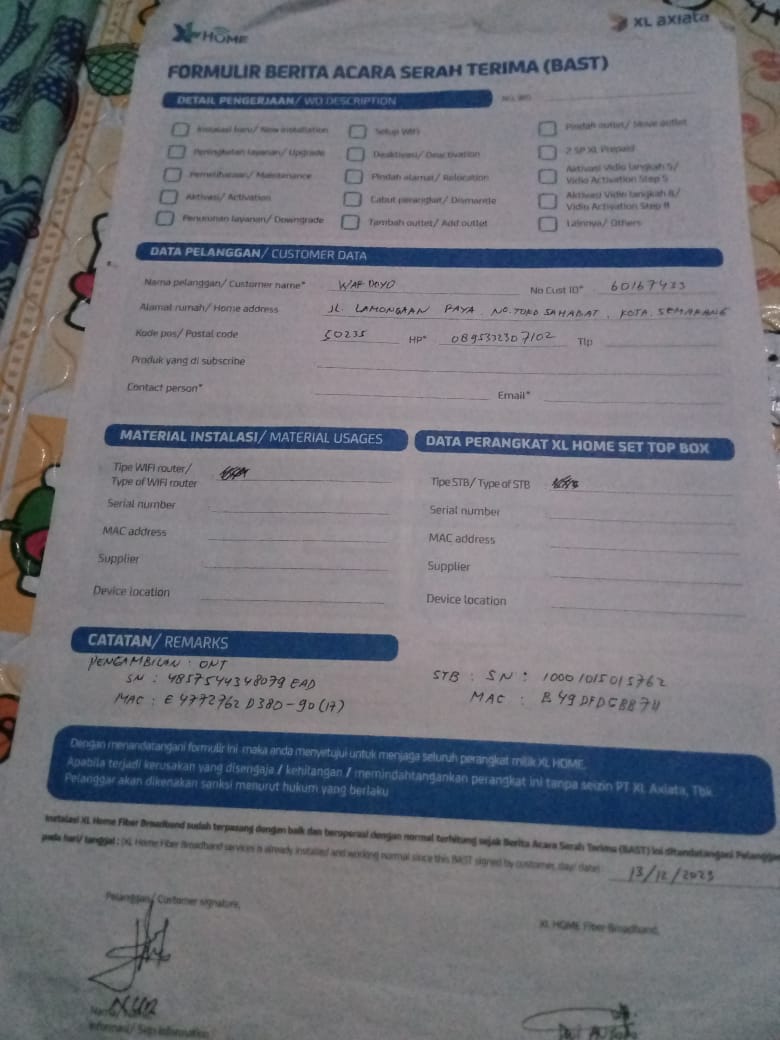 XL HOME
XL axiata
FORMULIR BERITA ACARA SERAH TERIMA (BAST)
DETAIL PENGERJAAN/ WO DESCRIPTION
No. WO
Instalasi baru/ New installation
Setup WiFi
Pindah outlet/ Move outlet
Peningkatan layanan/ Upgrade
Deaktivasi/ Deactivation
2 SP XL Prepaid
Pemeliharaan/ Maintenance
Pindah alamat/ Relocation
Aktivasi Vidio langkah 5/
Vidio Activation Step 5
Aktivasi/ Activation
Cabut perangkat/ Dismantle
Aktivasi Vidio langkah 8/
Vidio Activation Step 8
Penurunan layanan/ Downgrade
Tambah outlet/ Add outlet
Lainnya/ Others
DATA PELANGGAN/ CUSTOMER DATA
Nama pelanggan/ Customer name*
No Cust ID* 60167433
Alamat rumah/ Home address JL. LAMONGAAN RAYA. NO. TOKO SAHABAT, KOTA. SEMARANG
Kode pos/ Postal code 50235 HP* 0895332307102 Tlp
Produk yang di subscribe
Contact person* Email*
MATERIAL INSTALASI/ MATERIAL USAGES
Tipe WiFi router/
Type of WiFi router
Serial number
MAC address
Supplier
Device location
DATA PERANGKAT XL HOME SET TOP BOX
Tipe STB/ Type of STB
Serial number
MAC address
Supplier
Device location
CATATAN/ REMARKS
PENGAMBILAN : ONT
SN : 4857544348079EAD
MAC : E4772762D380-90(17)
STB : SN : 10001015015762
MAC :
Dengan menandatangani formulir ini maka anda menyetujui untuk menjaga seluruh perangkat milik XL HOME.
Apabila terjadi kerusakan yang disengaja / kehilangan / memindahtangankan perangkat ini tanpa seizin PT XL Axiata, Tbk
Pelanggar akan dikenakan sanksi menurut hukum yang berlaku
Instalasi XL Home Fiber Broadband sudah terpasang dengan baik dan beroperasi dengan normal terhitung sejak Berita Acara Serah Terima (BAST) ini ditandatangani Pelanggan
pada hari/ tanggal : (XL Home Fiber Broadband services is already installed and working normal since this BAST signed by customer, day/ date) 13/12/2023
Pelanggan/ Customer signature,
XL HOME Fiber Broadband,